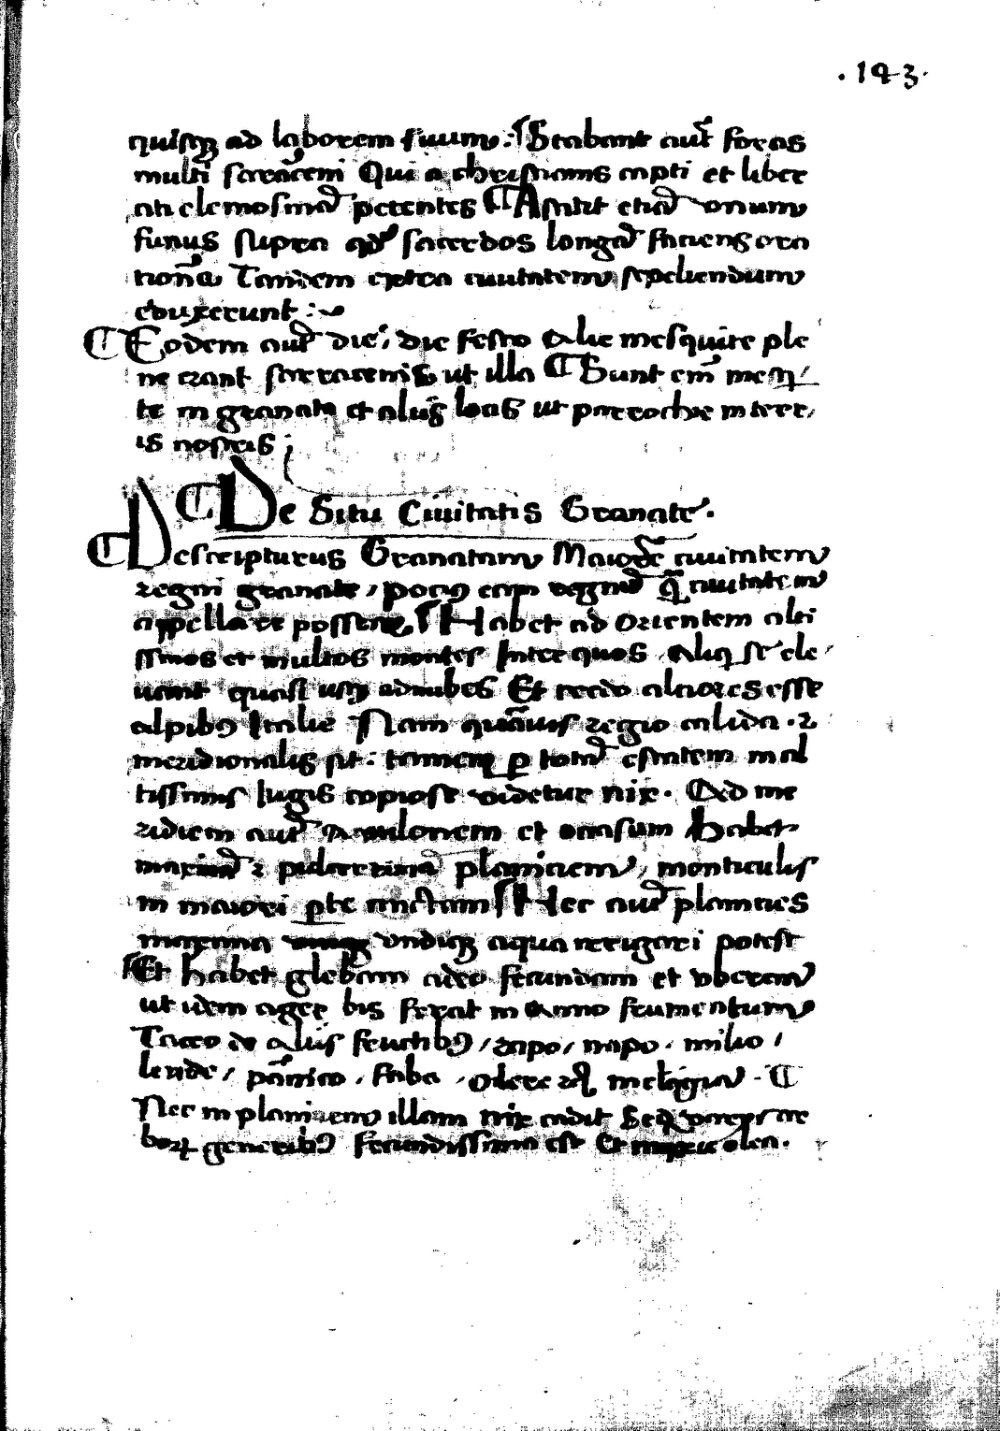 .143.
quisq₃ ad laborem suum: Stabant aut̄ foras
multi saraceni Qui a christianis capti et liber
ati elemosinā petentes ¶ Astitit etiā vnum
funus supra qđ sacerdos longā faciens ora
tionē Tandem extra ciuitatem sepeliendum
duxerunt :~
¶ Eodem aut̄ die, die festo Alie mesquite ple
ne erant saracenis ut illa ¶ Sunt em̄ mesq̄
te in granata et alijs locis ut parrochie in terr
is nostris ;
¶ De Situ Ciuitatis Granate.
¶ Descripturus Granatam Maiorē ciuitatem
regni granate, pocius eam regnū quā ciuitatem
appellare possem ¶ Habet ad orientem alti
ssimos et multos montes Inter quos Aliq̄ se ele
uant quasi usq₃ ad nubes Et credo altiores esse
alpibꝰ Italie Nam quāuis regio calida . ⁊
meridionalis sit : tamen ꝑ totā estatem in al
tissimis iugis copiose videtur nix . Ad me
ridiem aut̄ Aquilonem et occasum habet
maximā ⁊ pulcerrimā planiciem, monticulis
in maiori ꝑte cinctam ¶ Hec aut̄ planicies
maxima vndiq₃ aqua rerigari potest
¶ Et habet glebam adeo fecundam et vberem
ut idem ager bis ferat in Anno frumentum
Taceo de Alijs fructibꝰ, rapo, napo . milio ,
lende, pānico . faba . olere melingia . ¶
Nec in planiciem illam nix cadit Sed
borꝝ generibꝰ fecundissima est Et olea .